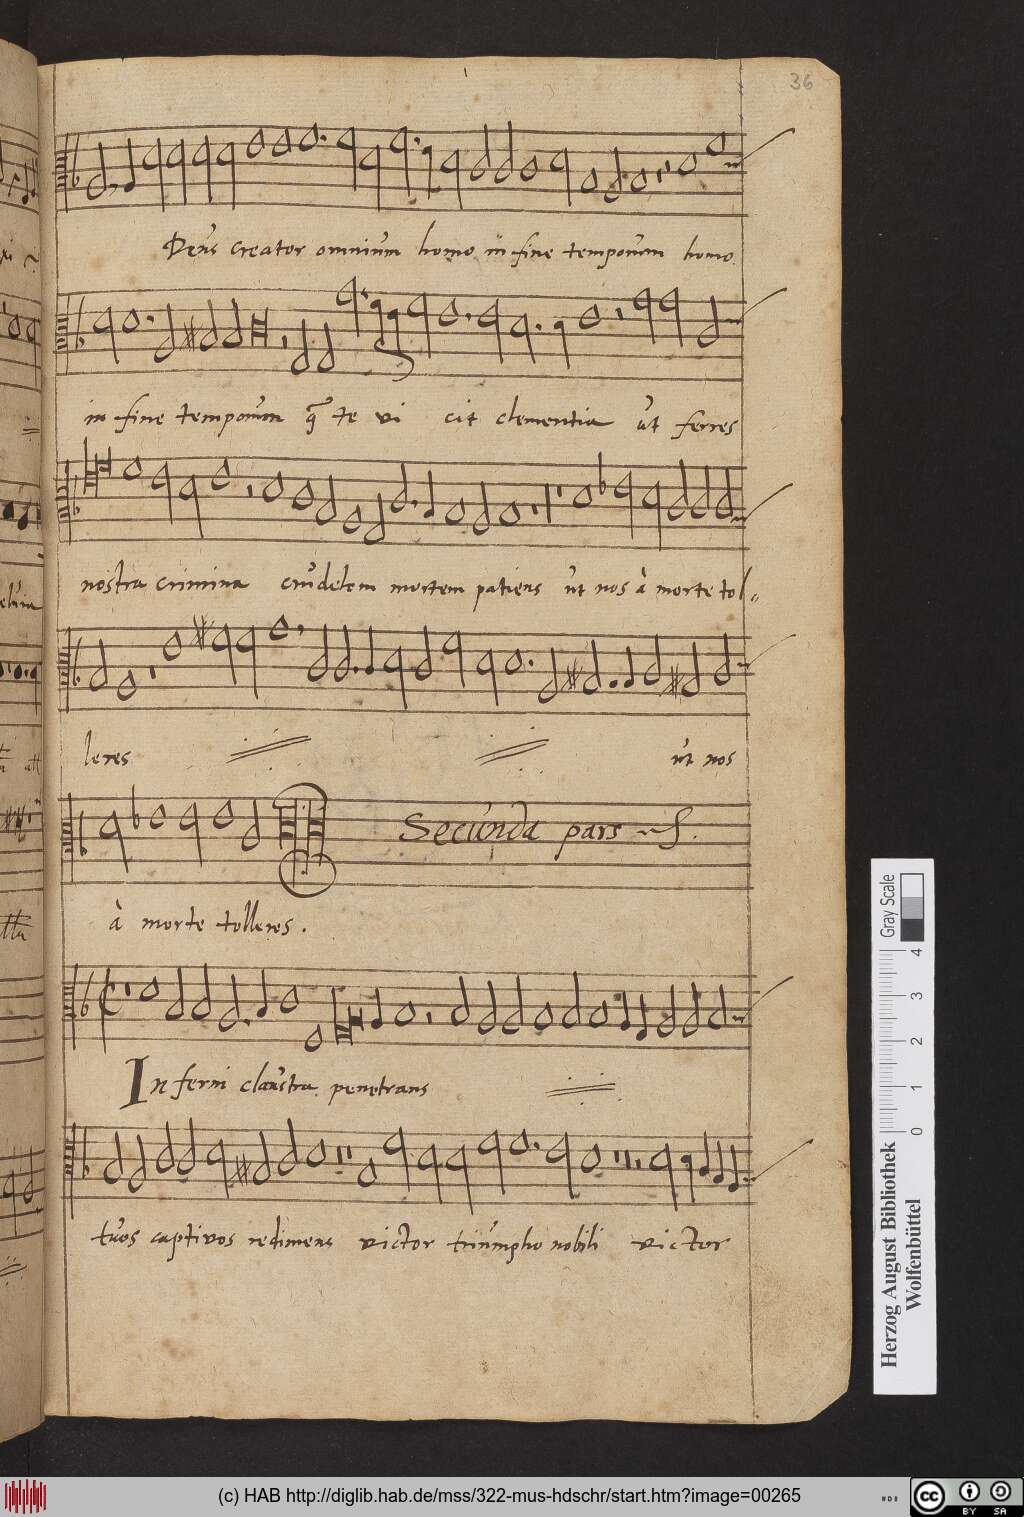 36
Deus creator omnium homo in fine temporum homo.
in fine temporum q̃ te vi cit clementia ut ferres
nostra crimina crudelem mortem patiens ut nos à morte tol-
leres ut nos
Secunda pars
à morte tolleres.
In ferni claustra penetrans
tuos captivos redimens victor triumpho nobili victor
Gray Scale
0 1 2 3 4
Herzog August Bibliothek
Wolfenbüttel
(c) HAB http://diglib.hab.de/mss/322-mus-hdschr/start.htm?image=00265
cc BY SA